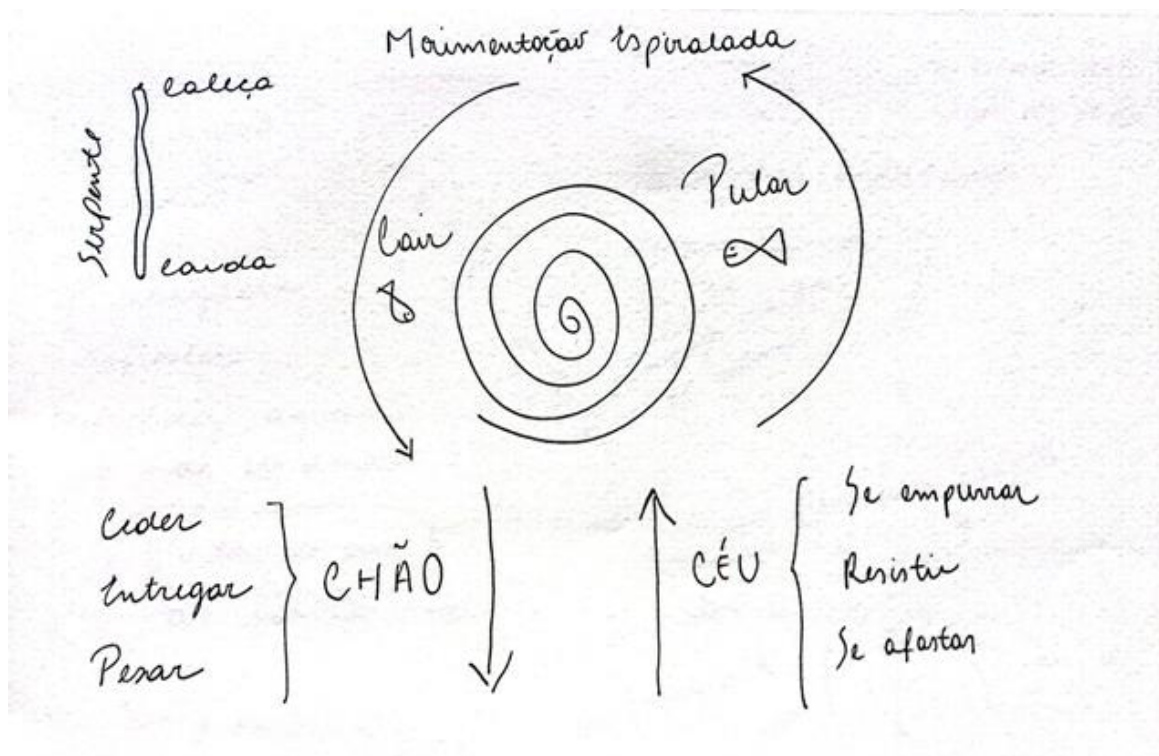 Movimentação Espiralada
cabeça
Serpente
cauda
Cair
Pular
Ceder
Entregar
Pesar
CHÃO
CÉU
Se empurrar
Resistir
Se afastar